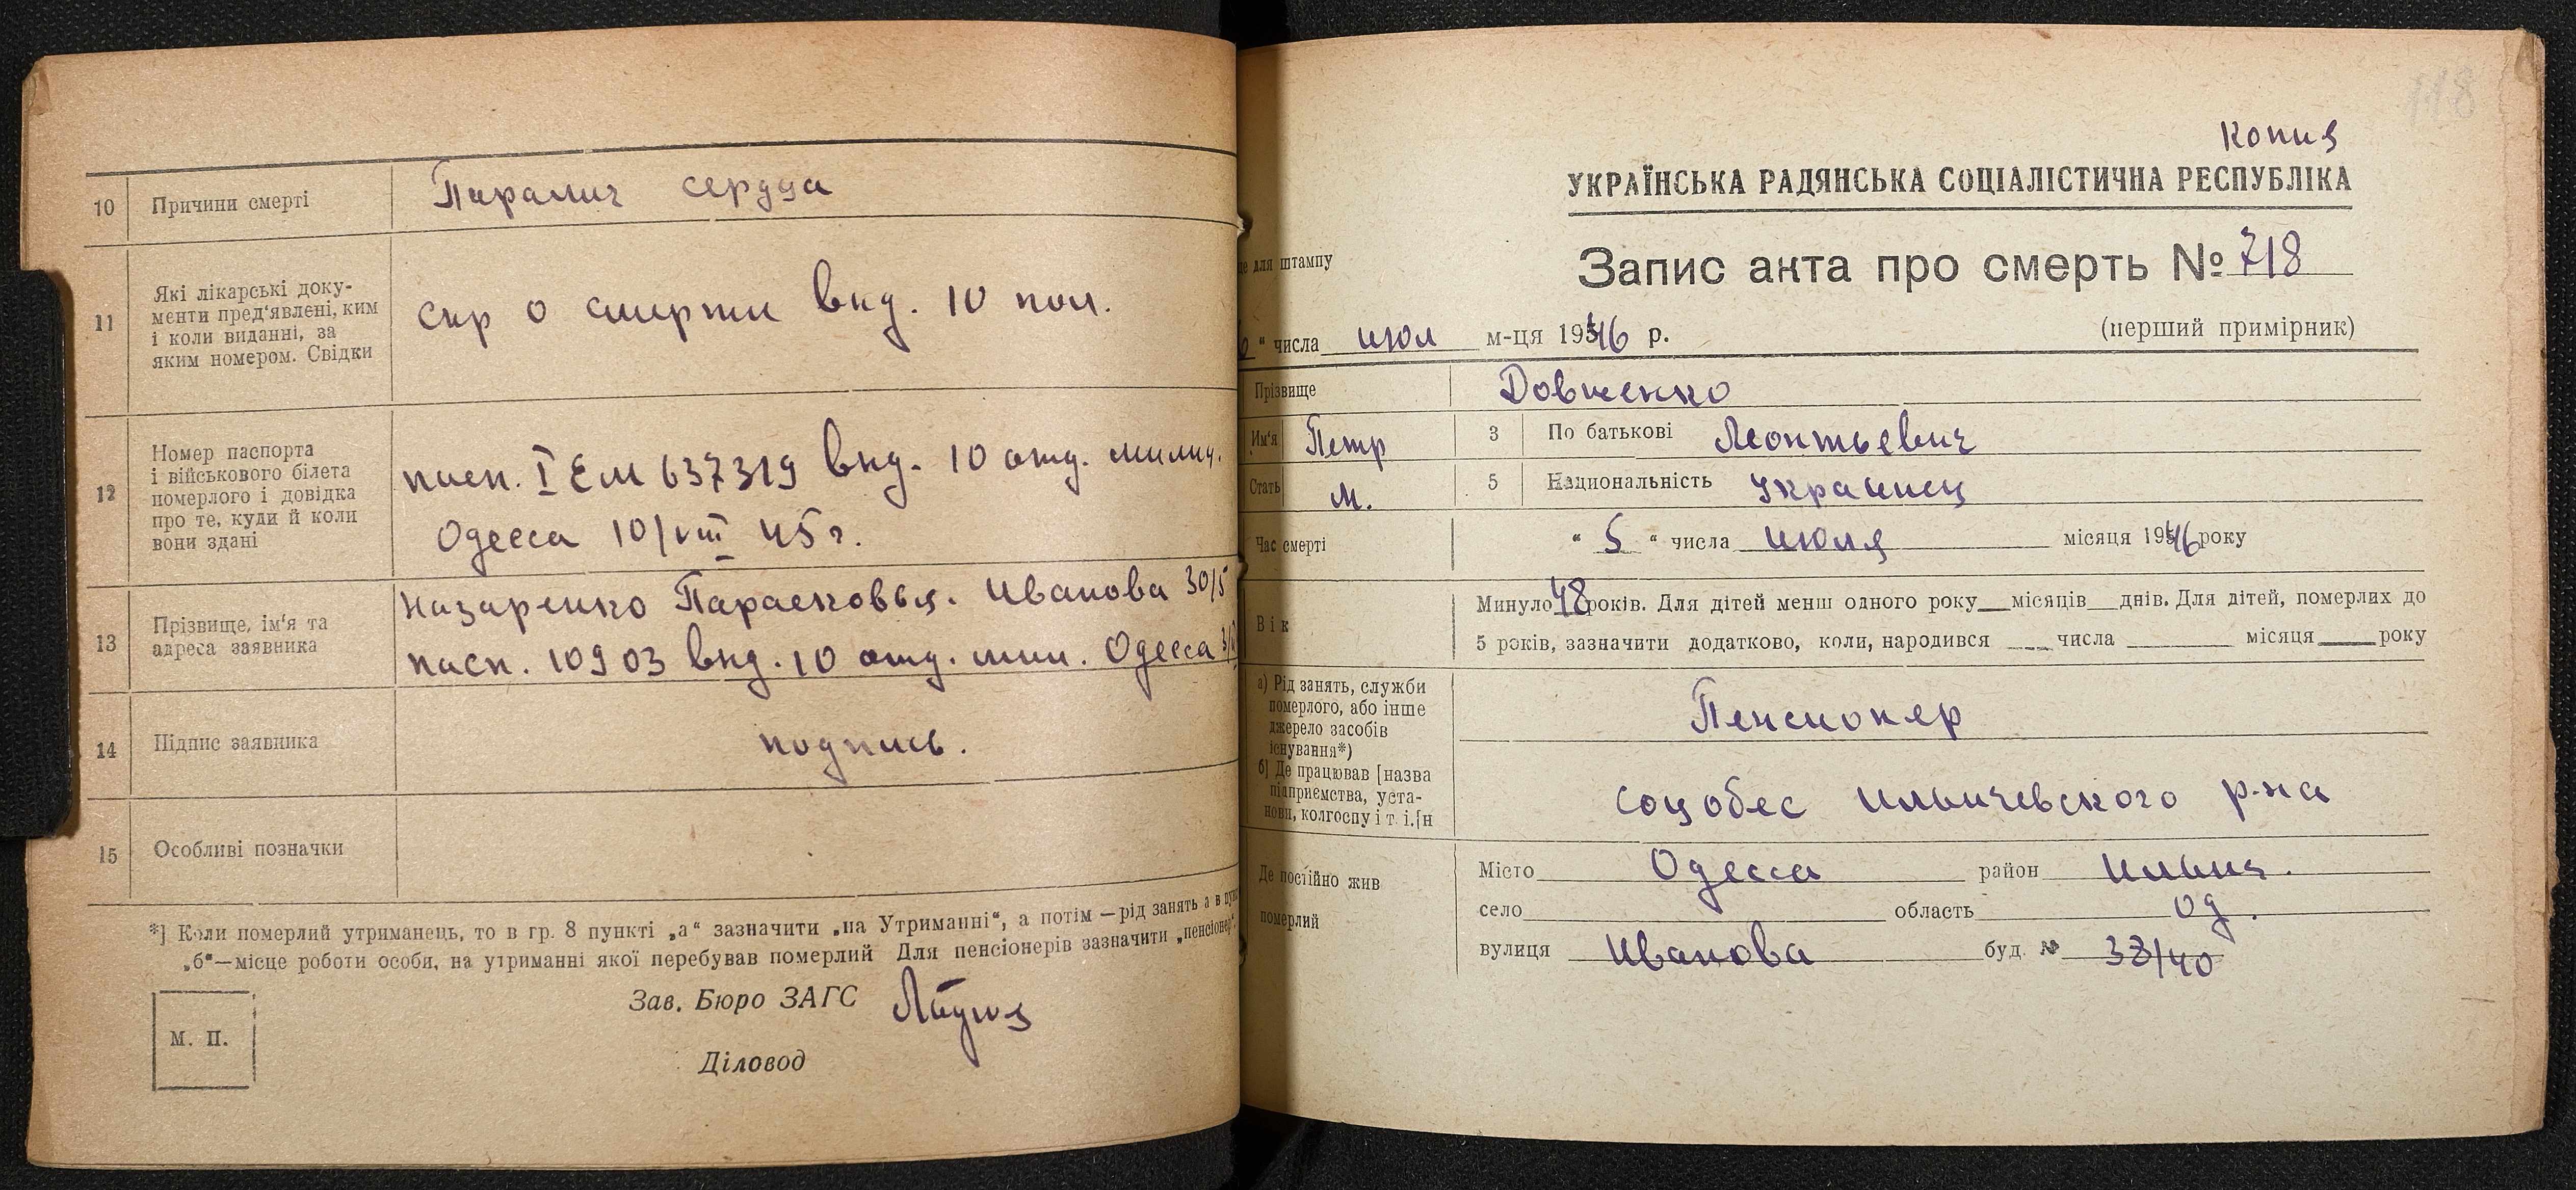 10 Причини смерті Паралич сердца
11 Які лікарські доку-
менти пред'явлені, ким
і коли виданні, за
яким номером. Свідки
спр о смерти выд. 10 пол.
12 Номер паспорта
і військового білета
померлого і довідка
про те, куди й коли
вони здані
пасп. I ЕМ 637319 выд. 10 отд. милиц.
Одесса 10/VIII 45 г.
13 Прізвище, ім'я та
адреса заявника
Назаренко Парасковья. Иванова 30/5
пасп. 10903 выд. 10 отд. мил. Одесса
14 Підпис заявника подпись.
15 Особливі позначки
*] Коли померлий утриманець, то в гр. 8 пункті „а“ зазначити „на Утриманні“, а потім — рід занять а в
„б“—місце роботи особи, на утриманні якої перебував померлий Для пенсіонерів зазначити „пенсіонер“.
Зав. Бюро ЗАГС
М. П.
Діловод
118
Копия
УКРАЇНСЬКА РАДЯНСЬКА СОЦІАЛІСТИЧНА РЕСПУБЛІКА
для штампу
Запис акта про смерть № 718
“ числа июл м-ця 1946 р. (перший примірник)
Прізвище Довженко
Им'я Петр 3 По батькові Леонтьевич
Стать м. 5 Національність Украинец
Час смерті “ 5 “ числа июля місяця 1946 року
Вік
Минуло 48 років. Для дітей менш одного року місяців днів. Для дітей, померлих до
5 років, зазначити додатково, коли, народився числа місяця року
а) Рід занять, служби
померлого, або інше
джерело засобів
існування*)
Пенсионер
б] Де працював [назва
підприємства, уста-
нови, колгоспу і т. і.[н
соцобес Ильичевского р-на
Де постійно жив
померлий
Місто Одесса район Ильич.
село область Од.
вулиця Иванова буд. № 38/40